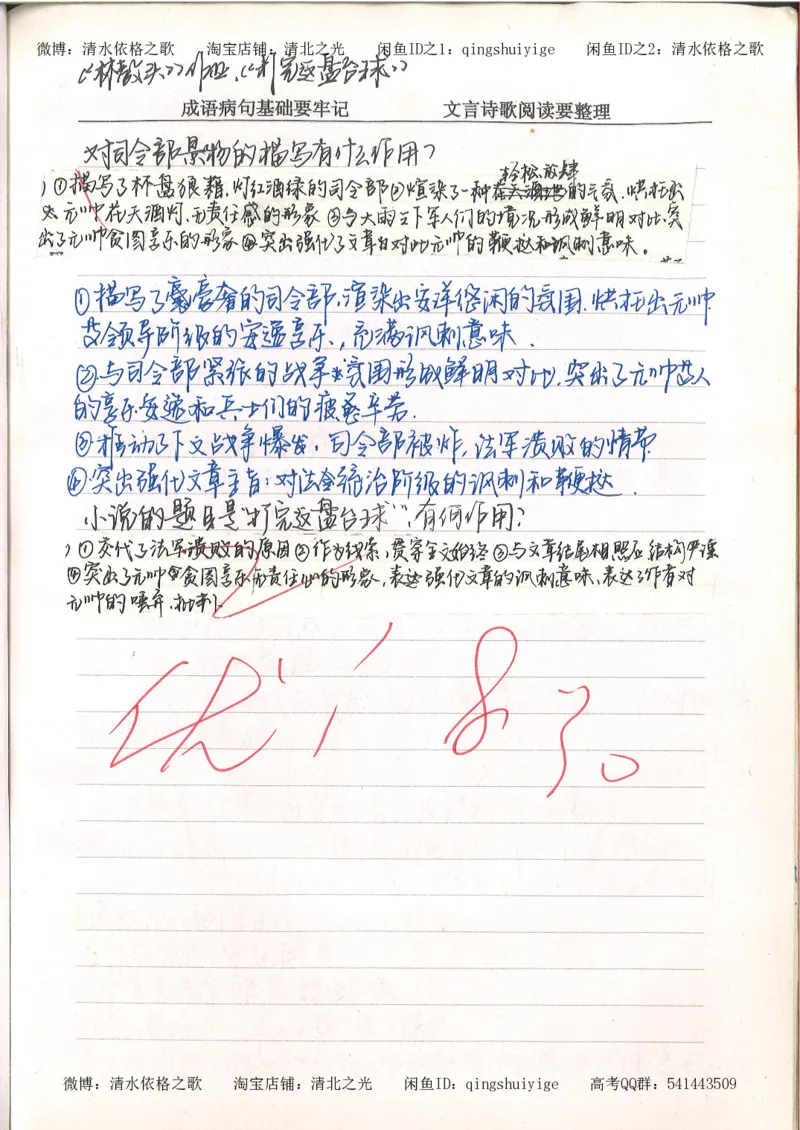 微博：清水依格之歌 淘宝店铺：清北之光 闲鱼ID之1：qingshuiyige 闲鱼ID之2：清水依格之歌
《林教头》作业、《打完这盘台球》
成语病句基础要牢记 文言诗歌阅读要整理
对司令部景物的描写有什么作用？
轻松、放肆
)①描写了杯盘狼藉，灯红酒绿的司令部②渲染了一种的气氛，烘托出
元帅花天酒地，无责任感的形象③与大雨之下军人们的情况形成鲜明对比，突
出了元帅贪图享乐的形象④突出强化了文章对元帅的鞭挞和讽刺意味。
①描写了豪奢的司令部，渲染出安详悠闲的氛围，烘托出元帅
及领导阶级的安逸享乐，充满讽刺意味．
②与司令部紧张的战争氛围形成鲜明对比，突出了元帅等人
的享乐安逸和兵士们的疲惫辛劳．
③推动了下文战争爆发，司令部被炸，法军溃败的情节
④突出强化文章主旨：对法国统治阶级的讽刺和鞭挞．
小说的题目是"打完这盘台球"，有何作用？
)①交代了法军溃败的原因②作为线索，贯穿全文始终③与文章结尾相照应 结构严谨
④突出了元帅贪图享乐无责任心的形象，表达强化文章的讽刺意味，表达了作者对
元帅的唾弃、批判．
优
微博：清水依格之歌 淘宝店铺：清北之光 闲鱼ID：qingshuiyige 高考QQ群：541443509